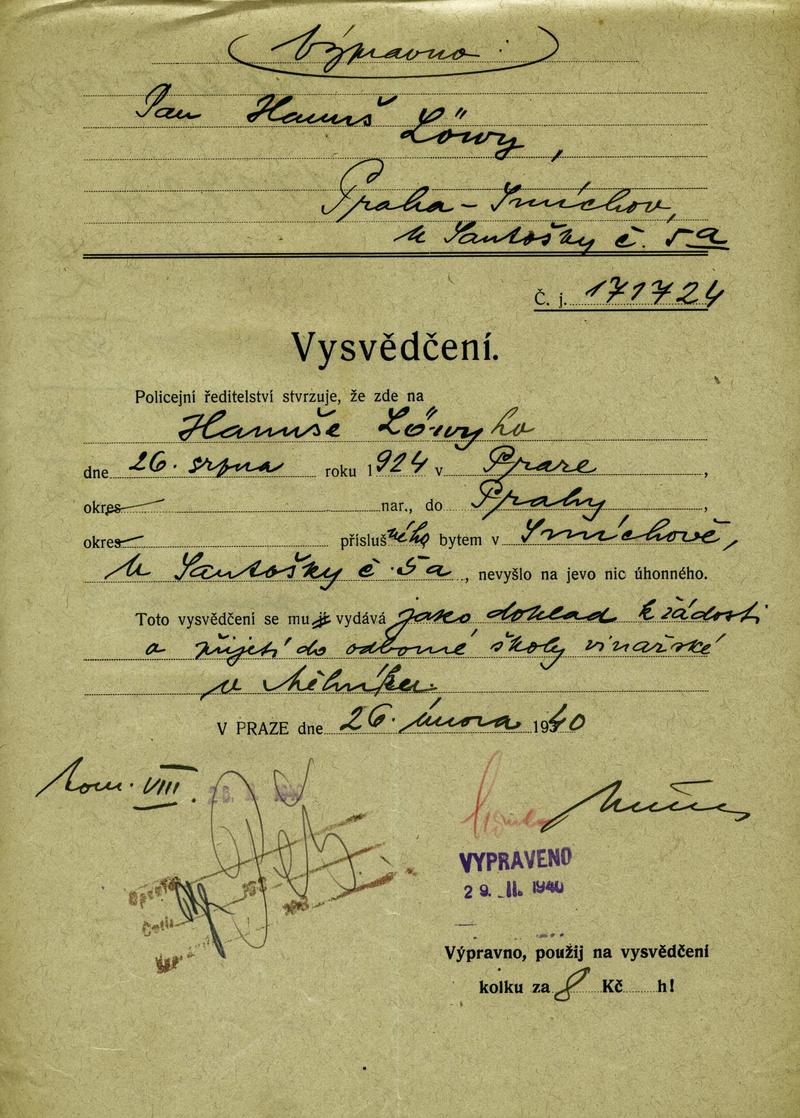 Výpravno
Pan Hanuš Löwy,
Praha - Smíchov,
u Santošky č. 5a
Č. j. 171724
Vysvědčení.
Policejní ředitelství stvrzuje, že zde na
Hanuše Löwyho
dne 26. srpna roku 1924 v Praze,
okres nar., do Prahy,
okres příslušného bytem v Smíchově,
u Santošky č 5a, nevyšlo na jevo nic úhonného.
Toto vysvědčení se mu vydává jako doklad k žádosti
o přijetí do odborné školy vinařské
v Mělníku.
V PRAZE dne 26. února 1940
kom. VIII.
VYPRAVENO
29. II. 1940
Výpravno, použij na vysvědčení
kolku za 8 Kč h!